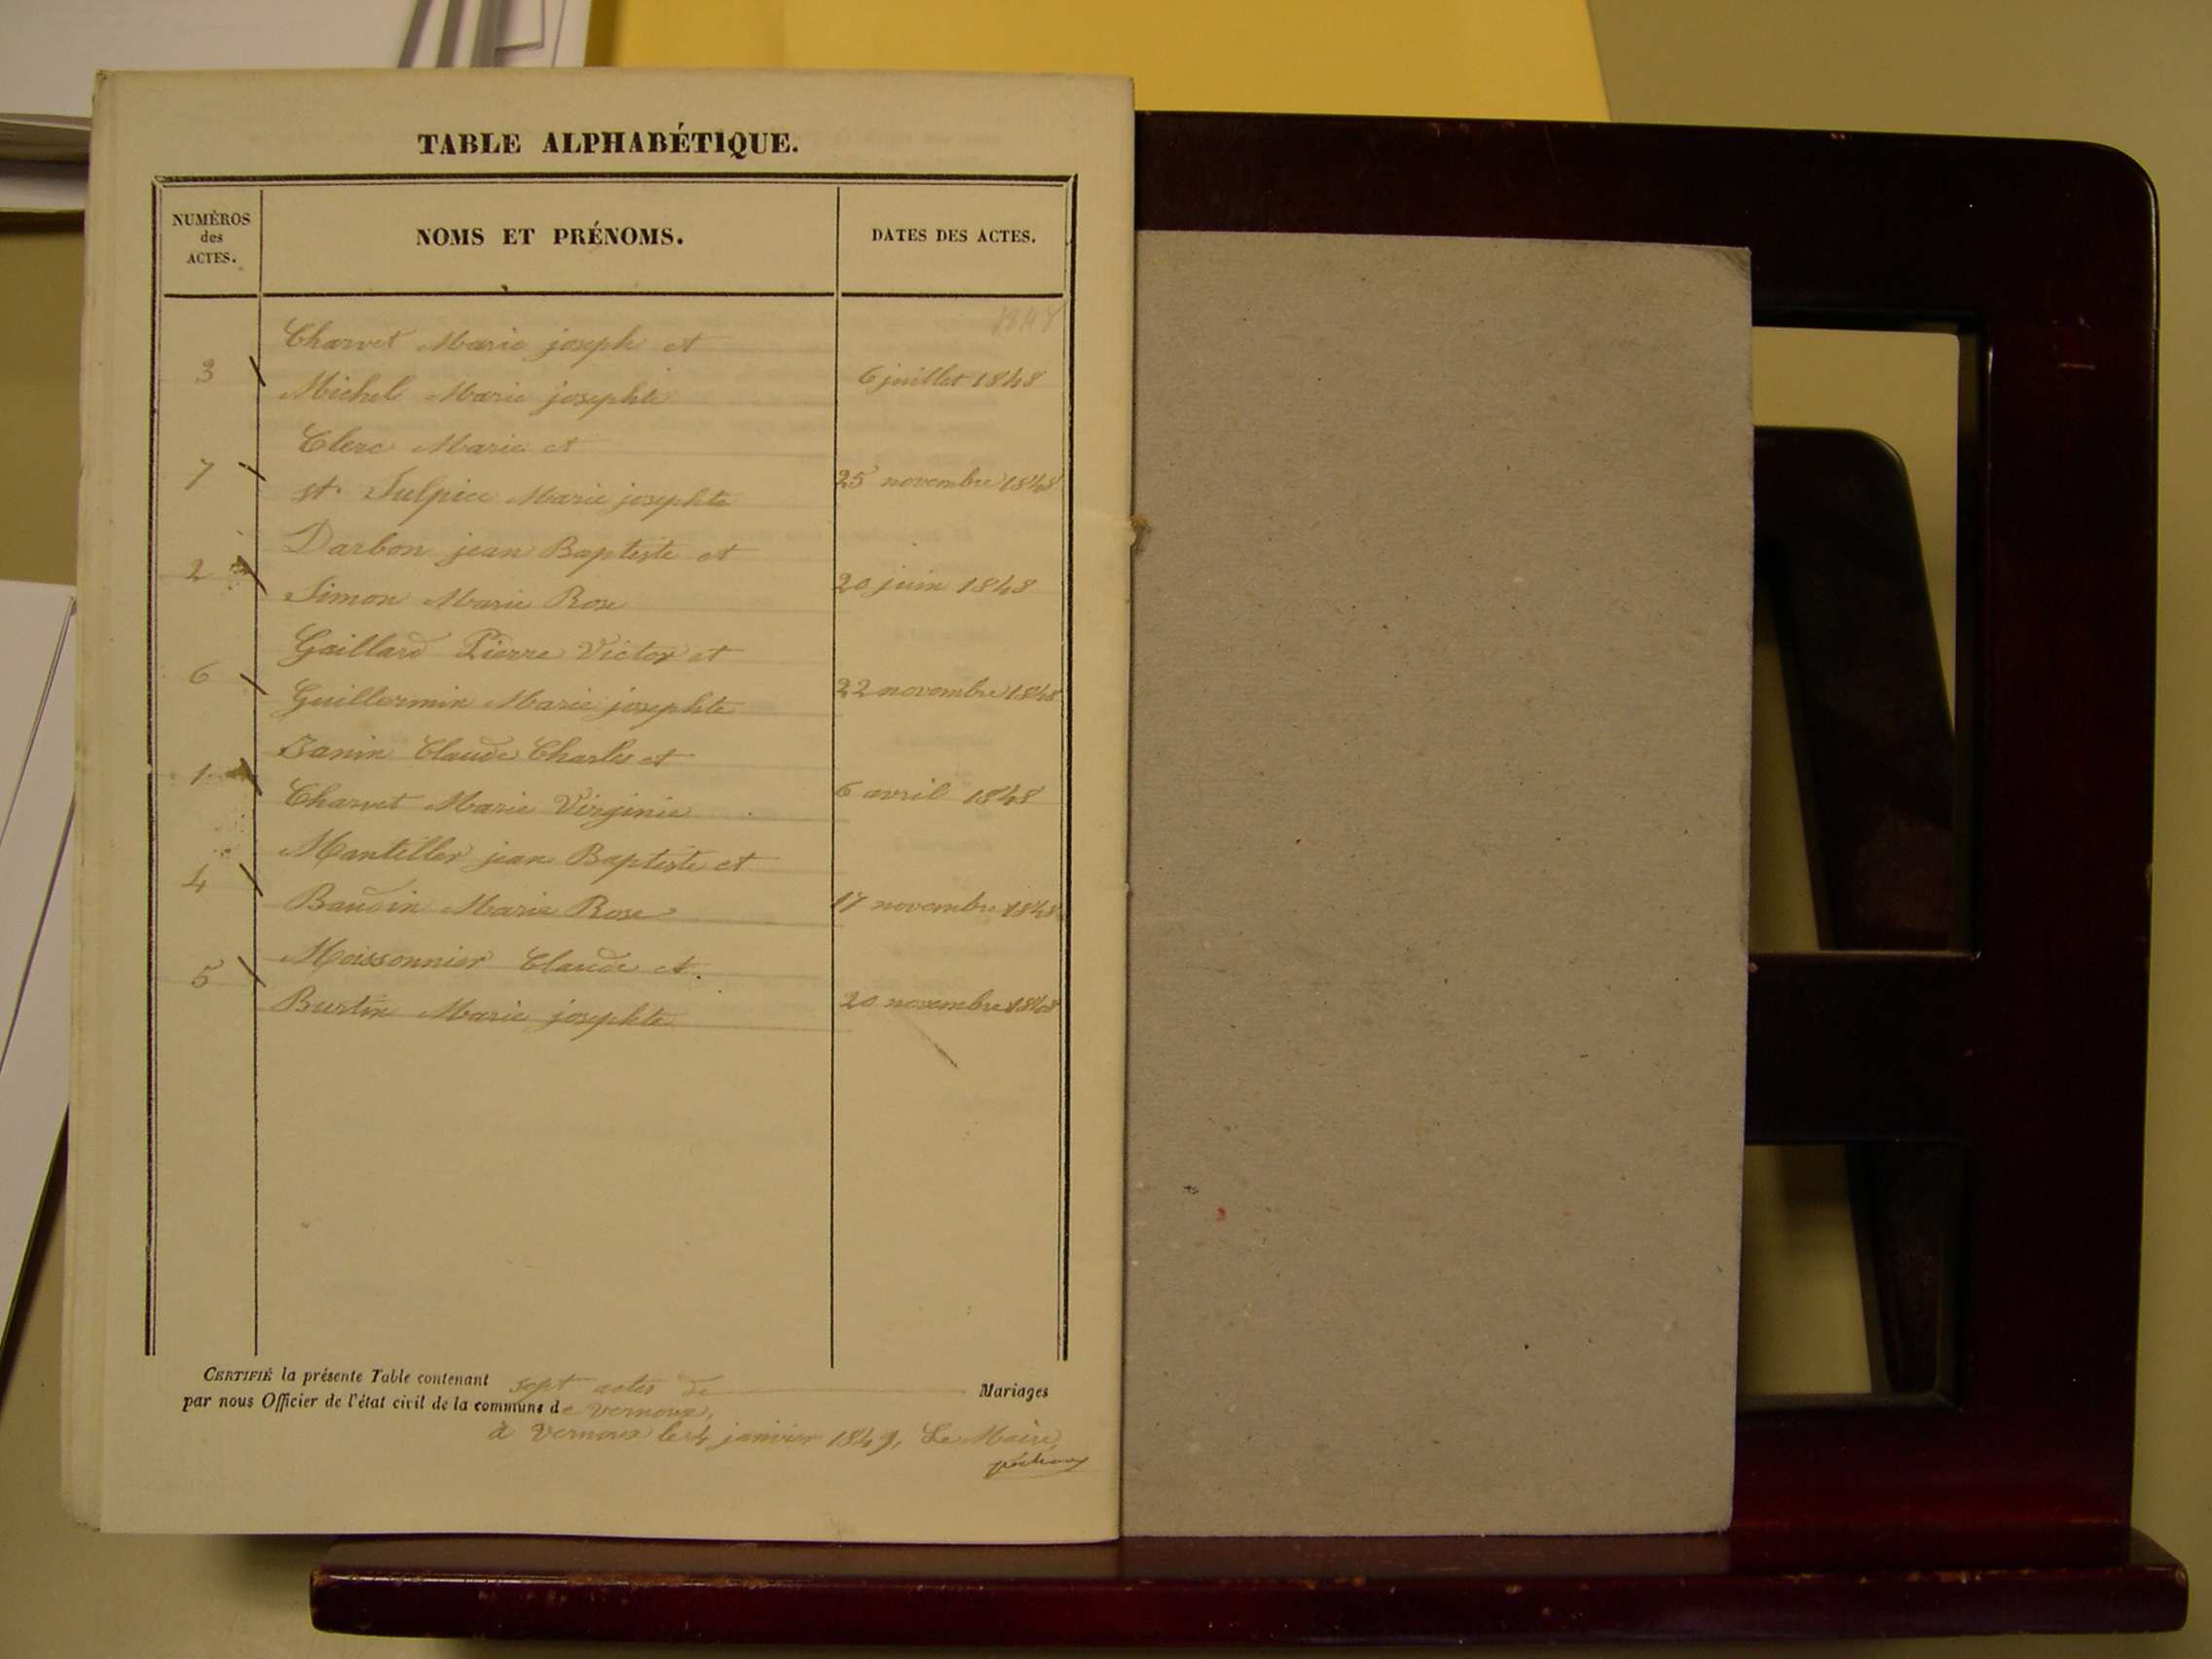 TABLE ALPHABÉTIQUE.
NUMÉROS
des
ACTES.
NOMS ET PRÉNOMS.
DATES DES ACTES.
1848
Charvet Marie joseph et
3
6 juillet 1848
Michel Marie josephte
Clerc Marie et
7
25 novembre 1848
st. Sulpice Marie josephte
Darbon jean Baptiste et
2
20 juin 1848
Simon Marie Rose
Gaillard Pierre Victor et
6
22 novembre 1848
Guillermin Marie josephte
Janin Claude Charles et
1
6 avril 1848
Charvet Marie Virginie
Mantiller jean Baptiste et
4
17 novembre 1848
Baudin Marie Rose
Moissonnier Claude et.
5
20 novembre 1848
Burtin Marie josephte
CERTIFIÉ la présente Table contenant sept actes de Mariages
par nous Officier de l'état civil de la commune de Vernoux,
à Vernoux le 4 janvier 1849, Le Maire,